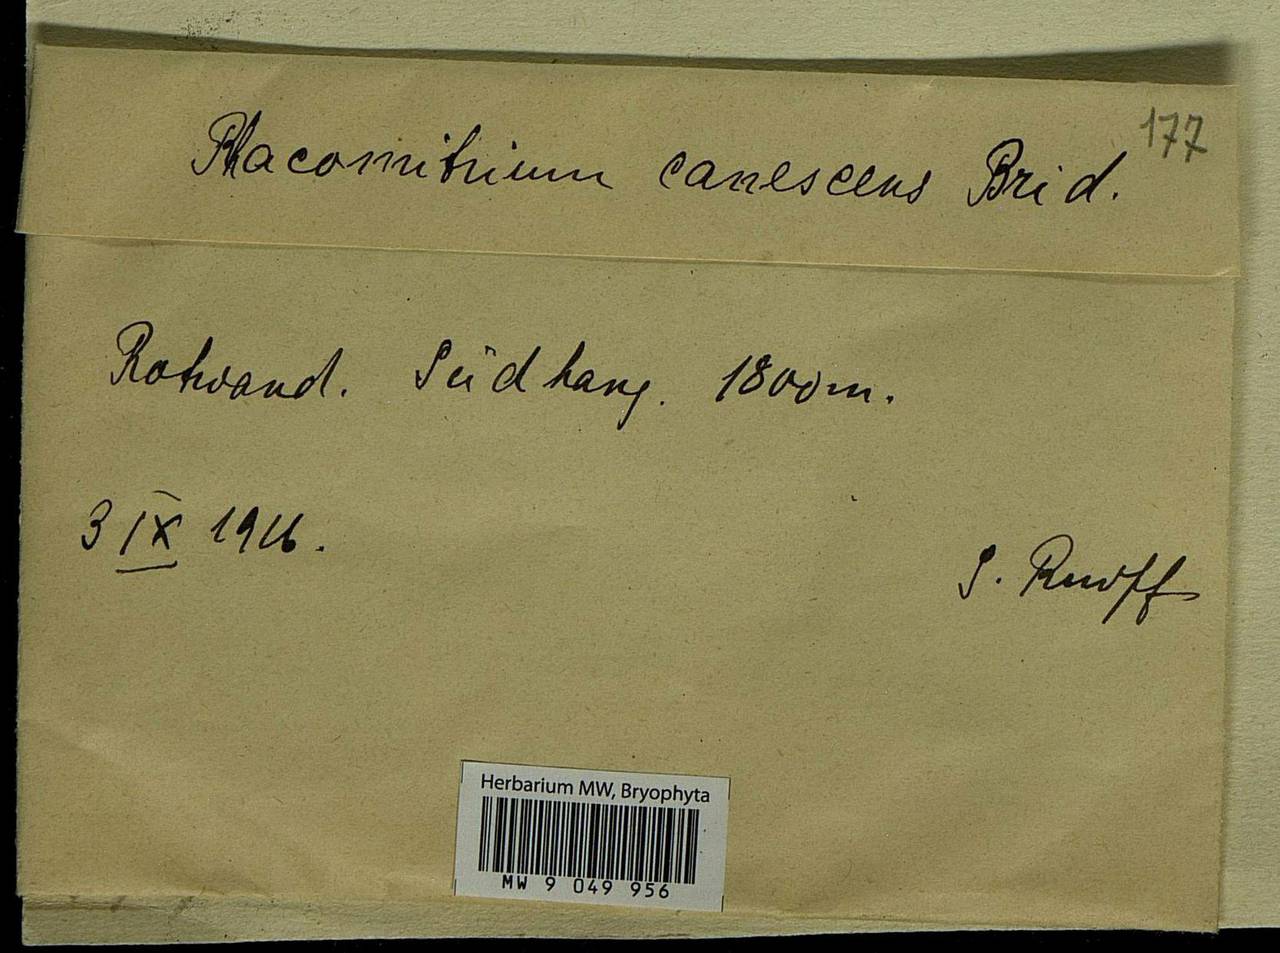 177
Rhacomitrium canescens Brid.
Rotwand. Südhang. 1800m.
3 IX 1916.
S. Ruoff
Herbarium MW, Bryophyta
MW 9 049 956